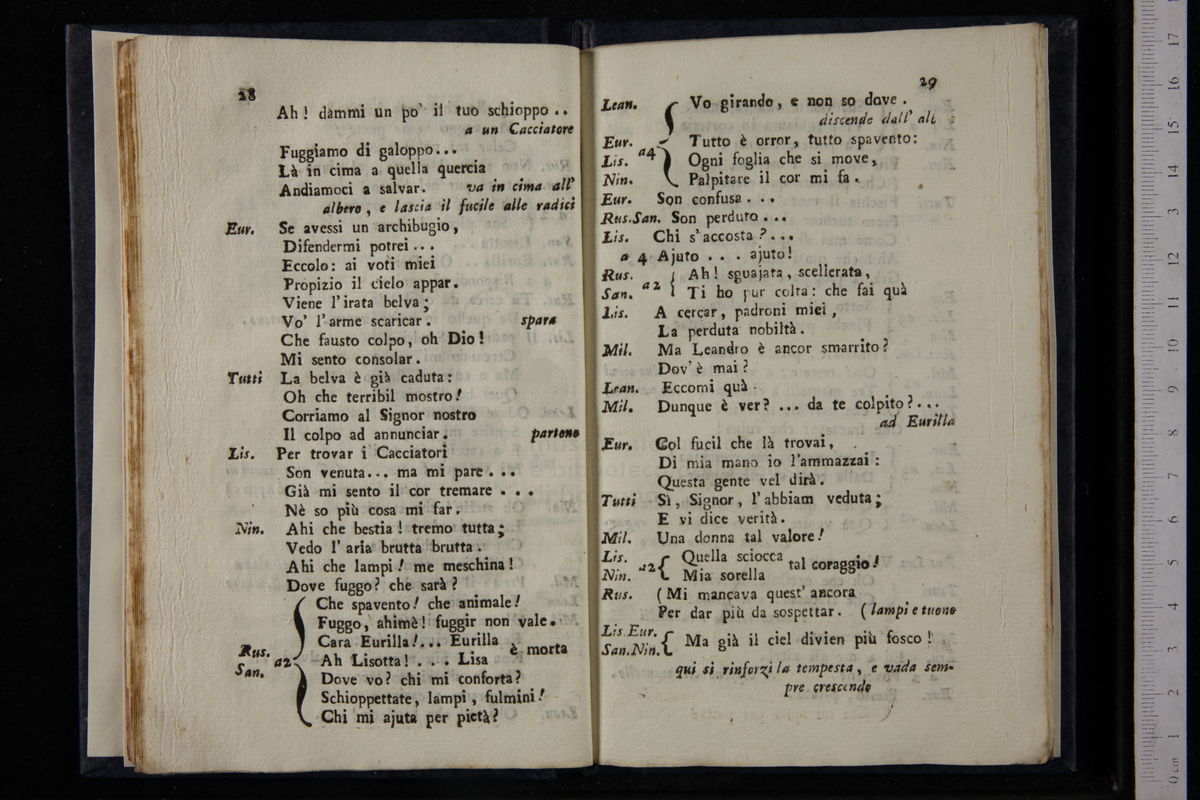 28
Ah! dammi un po' il tuo schioppo ..
a un Cacciatore
Fuggiamo di galoppo...
Là in cima a quella quercia
Andiamoci a salvar. va in cima all'
albero, e lascia il fucile alle radici
Eur. Se avessi un archibugio,
Difendermi potrei...
Eccolo: ai voti miei
Propizio il cielo appar.
Viene l'irata belva;
Vo' l'arme scaricar. spara
Che fausto colpo, oh Dio!
Mi sento consolar.
Tutti La belva è già caduta:
Oh che terribil mostro!
Corriamo al Signor nostro
Il colpo ad annunciar. partono
Lis. Per trovar i Cacciatori
Son venuta... ma mi pare...
Già mi sento il cor tremare...
Nè so più cosa mi far.
Nin. Ahi che bestia! tremo tutta;
Vedo l'aria brutta brutta.
Ahi che lampi! me meschina!
Dove fuggo? che sarà?
Che spavento! che animale!
Fuggo, ahimè! fuggir non vale.
Cara Eurilla!... Eurilla
è morta
Rus. San. a2 Ah Lisotta!... Lisa
Dove vo? chi mi conforta?
Schioppettate, lampi, fulmini!
Chi mi ajuta per pietà?
29
Lean. Vo girando, e non so dove.
discende dall' alt
Eur. Tutto è orror, tutto spavento:
Lis. a4 Ogni foglia che si move,
Nin. Palpitare il cor mi fa.
Eur. Son confusa...
Rus.San. Son perduto...
Lis. Chi s'accosta?...
a 4 Ajuto... ajuto!
Rus. Ah! sguajata, scellerata,
San. a2 Ti ho pur colta: che fai quà
Lis. A cercar, padroni miei,
La perduta nobiltà.
Mil. Ma Leandro è ancor smarrito?
Dov'è mai?
Lean. Eccomi quà
Mil. Dunque è ver?... da te colpito?...
ad Eurilla
Eur. Col fucil che là trovai,
Di mia mano io l'ammazzai:
Questa gente vel dirà.
Tutti Sì, Signor, l'abbiam veduta;
E vi dice verità.
Mil. Una donna tal valore!
Lis. Quella sciocca
a2 tal coraggio!
Nin. Mia sorella
Rus. (Mi mancava quest' ancora
Per dar più da sospettar. (lampi e tuono
Lis Eur.
San.Nin. Ma già il ciel divien più fosco!
qui si rinforzi la tempesta, e vada sem-
pre crescendo
0 cm 1 2 3 4 5 6 7 8 9 10 11 12 13 14 15 16 17